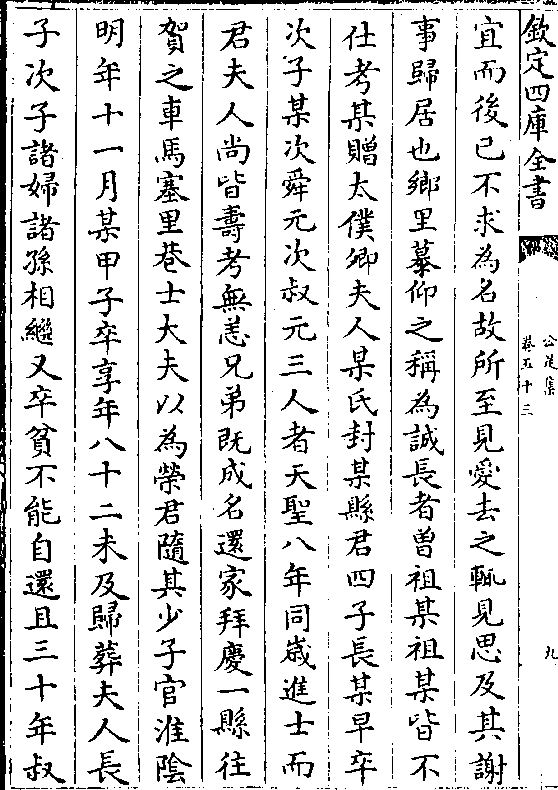 欽定四庫全書
公是集
卷五十三
九
宜而後已不求為名故所至見愛去之輒見思及其謝
事歸居也鄉里慕仰之稱為誠長者曽祖某祖某皆不
仕考某贈太僕卿夫人某氏封某縣君四子長某早卒
次子某次舜元次叔元三人者天聖八年同嵗進士而
君夫人尚皆壽考無恙兄弟既成名還家拜慶一縣往
賀之車馬塞里巷士大夫以為榮君隨其少子官淮陰
明年十一月某甲子卒享年八十二未及歸葬夫人長
子次子諸婦諸孫相繼又卒貧不能自還且三十年叔